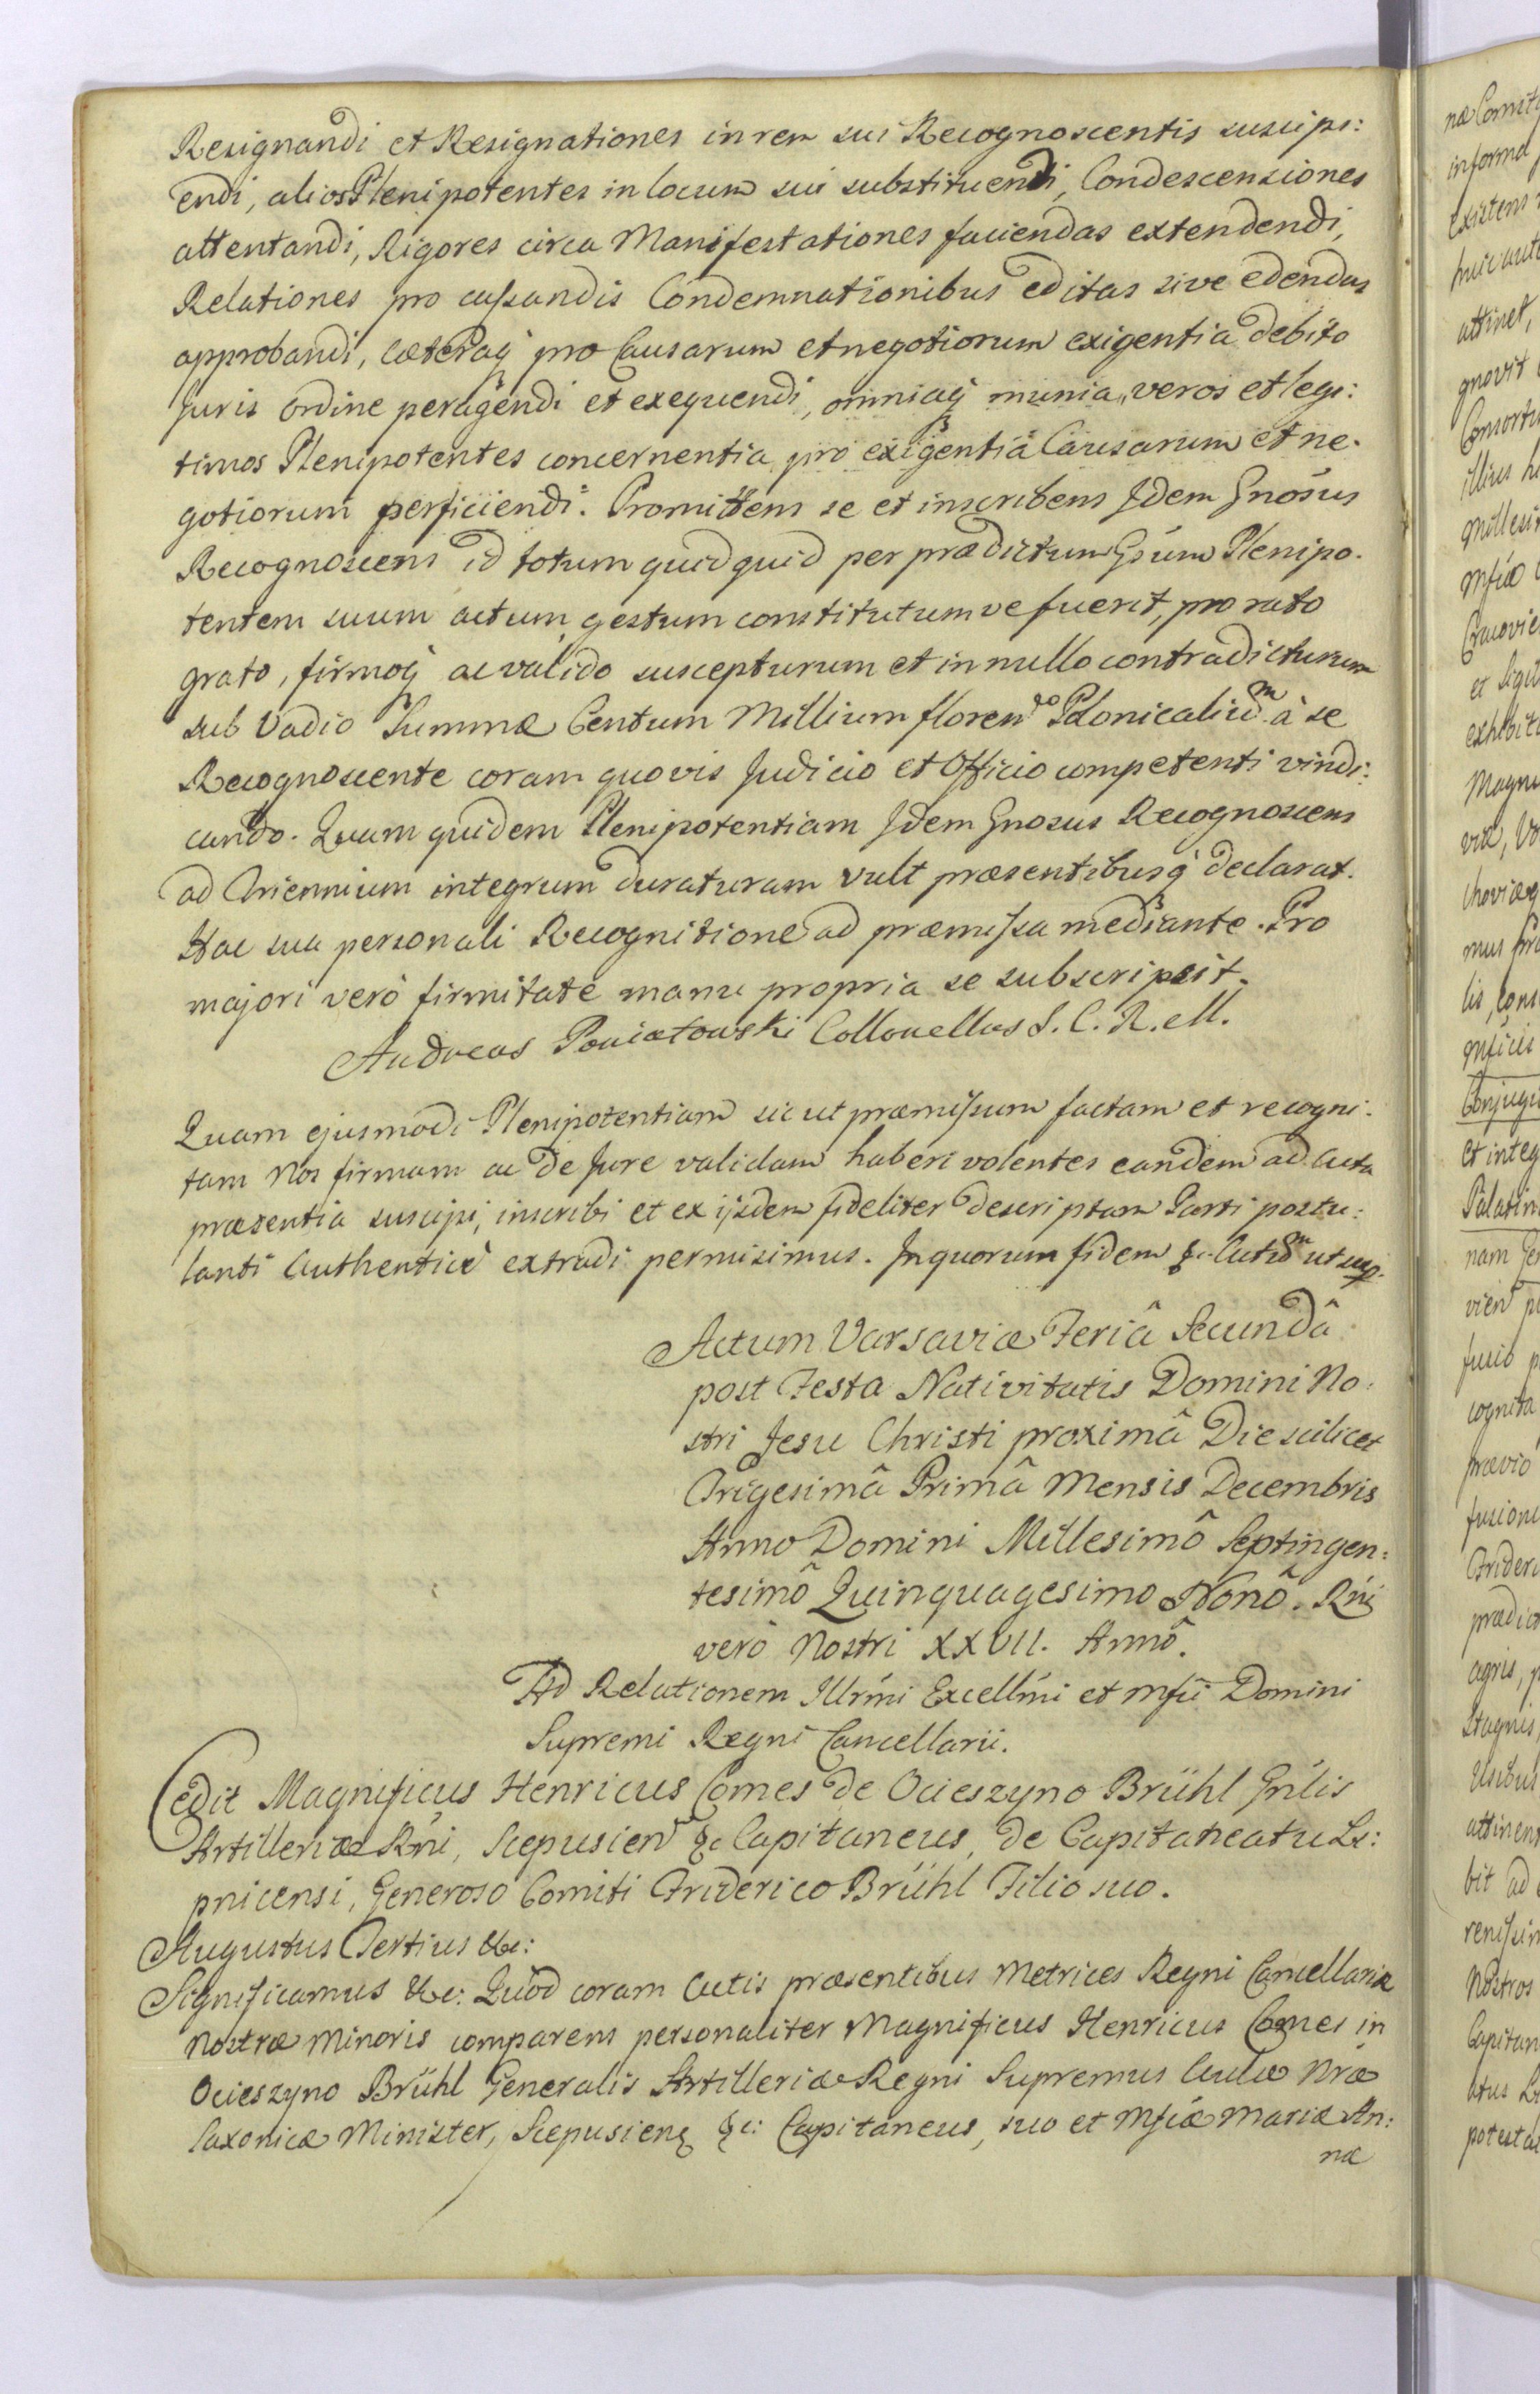 Resignandi et Resignationes in rem sui Recognoscentis suscipi:
endi, alios Plenipotentes in locum sui substituendi, Condescensiones
attentandi, Rigores circa Manifestationes faciendas extendendi,
Relationes pro cassandis Condemnationibus editas sive edendas
approbandi, cæteraq pro Causarum et negotiorum exigentia debito
Juris ordine peragendi et exequendi, omniaq munia, veros et legi:
timos Plenipotentes concernentia, pro exigentiâ Causarum et ne.
gotiorum perficiendi. Promittens se et inscribens Idem Gnosus
Recognoscens id totum quidquid per prædictum Gsum Plenipo.
tentem suum actum, gestum constitutumve fuerit, pro rato
grato, firmoq ac valido suscepturum et in nullo contradicturum
sub Vadio Summæ Centum Millium floren Polonicaliu à se
Recognoscente coram quovis Judicio et Officio competenti vindi:
cando. Quam quidem Plenipotentiam Idem Gnosus Recognoscens
ad Triennium integrum duraturam vult præsentibusq declarat.
Hac sua personali Recognitione ad præmissa mediante. Pro
majori verò firmitate manu propria se subscripsit.
Andreas Poniatowski Collonellus S. C. R. M.
Quam ejusmodi Plenipotentiam sic ut præmissum factam et recogni.
tam Nos firmam ac de Jure validam haberi volentes eandem ad Acta
præsentia suscipi, inscribi et ex ijsdem fideliter descriptam Parti postu:
lanti Authenticè extradi permisimus. In quorum fidem &c. Actum ut sup.
Actum Varsaviæ Feriâ Secundâ
post Festa Nativitatis Domini No.
stri Jesu Christi proximâ Die scilicet
Trigesimâ Primâ Mensis Decembris
Anno Domini Millesimô Septingen:
tesimô Quinquagesimo Nonô. Rni
verò Nostri XXVII. Annô.
Ad Relationem Illrmi Excellmi et Mfci Domini
Supremi Regni Cancellarii.
Cedit Magnificus Henricus Comes de Ocieszyno Brühl Gnlis
Artilleriæ Rni, Scepusien &c Capitaneus, de Capitaneatu Li:
pnicensi, Generoso Comiti Friderico Brühl Filio suo.
Augustus Tertius &c:
Significamus &c: Quod coram Actis præsentibus Metrices Regni Cancellariæ
Nostræ Minoris comparens personaliter Magnificus Henricus Comes in
Ocieszyno Brühl Generalis Artilleriæ Regni Supremus Aulæ Nræ
Saxonicæ Minister, Scepusien &c: Capitaneus, suo et Mfcæ Mariæ An:
næ